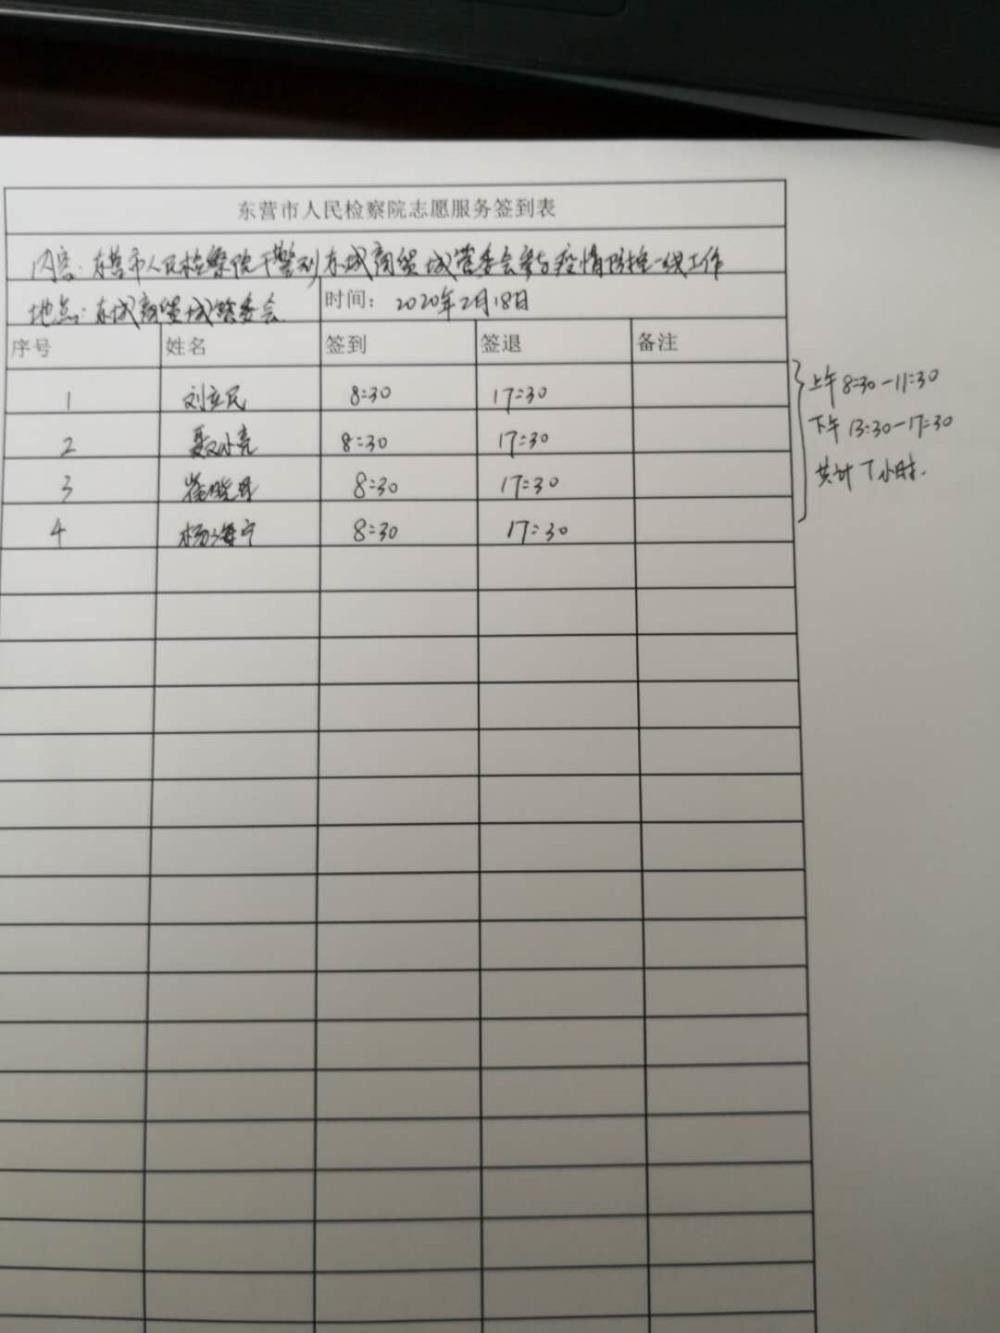 东营市人民检察院志愿服务签到表
内容：东营市人民检察院干警到东城商贸城管委会参与疫情防控一线工作
地点：东城商贸城管委会 时间： 2020年2月18日
序号 姓名 签到 签退 备注
1 刘立民 8:30 17:30
2 聂小亮 8:30 17:30
3 8:30 17:30
4 杨海宁 8:30 17:30
上午 8:30-11:30
下午 13:30-17:30
共计 7小时.